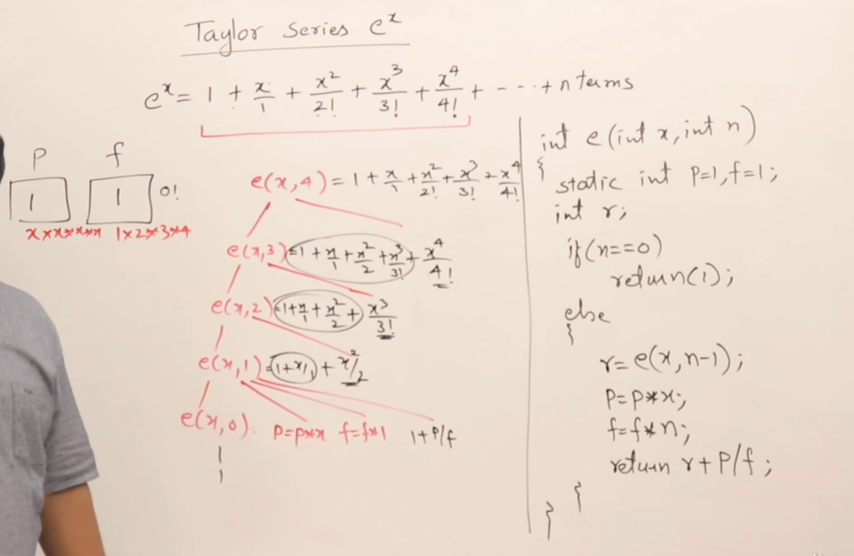 Taylor Series eˣ
eˣ = 1 + x/1 + x²/2! + x³/3! + x⁴/4! + - - - + n terms
P f
1 1 0!
x*x*x*x 1×2×3×4
e(x,4) = 1 + x/1 + x²/2! + x³/3! + x⁴/4!
e(x,3) = 1 + x/1 + x²/2 + x³/3! + x⁴/4!
e(x,2) = 1 + x/1 + x²/2 + x³/3!
e(x,1) = 1 + x/1 + x²/2
e(x,0) P=P*x f=f*1 1+P/f
1
int e(int x, int n)
{
static int P=1, f=1;
int r;
if(n==0)
return(1);
else
{
r=e(x,n-1);
P=P*x;
f=f*n;
return r+P/f;
}
}